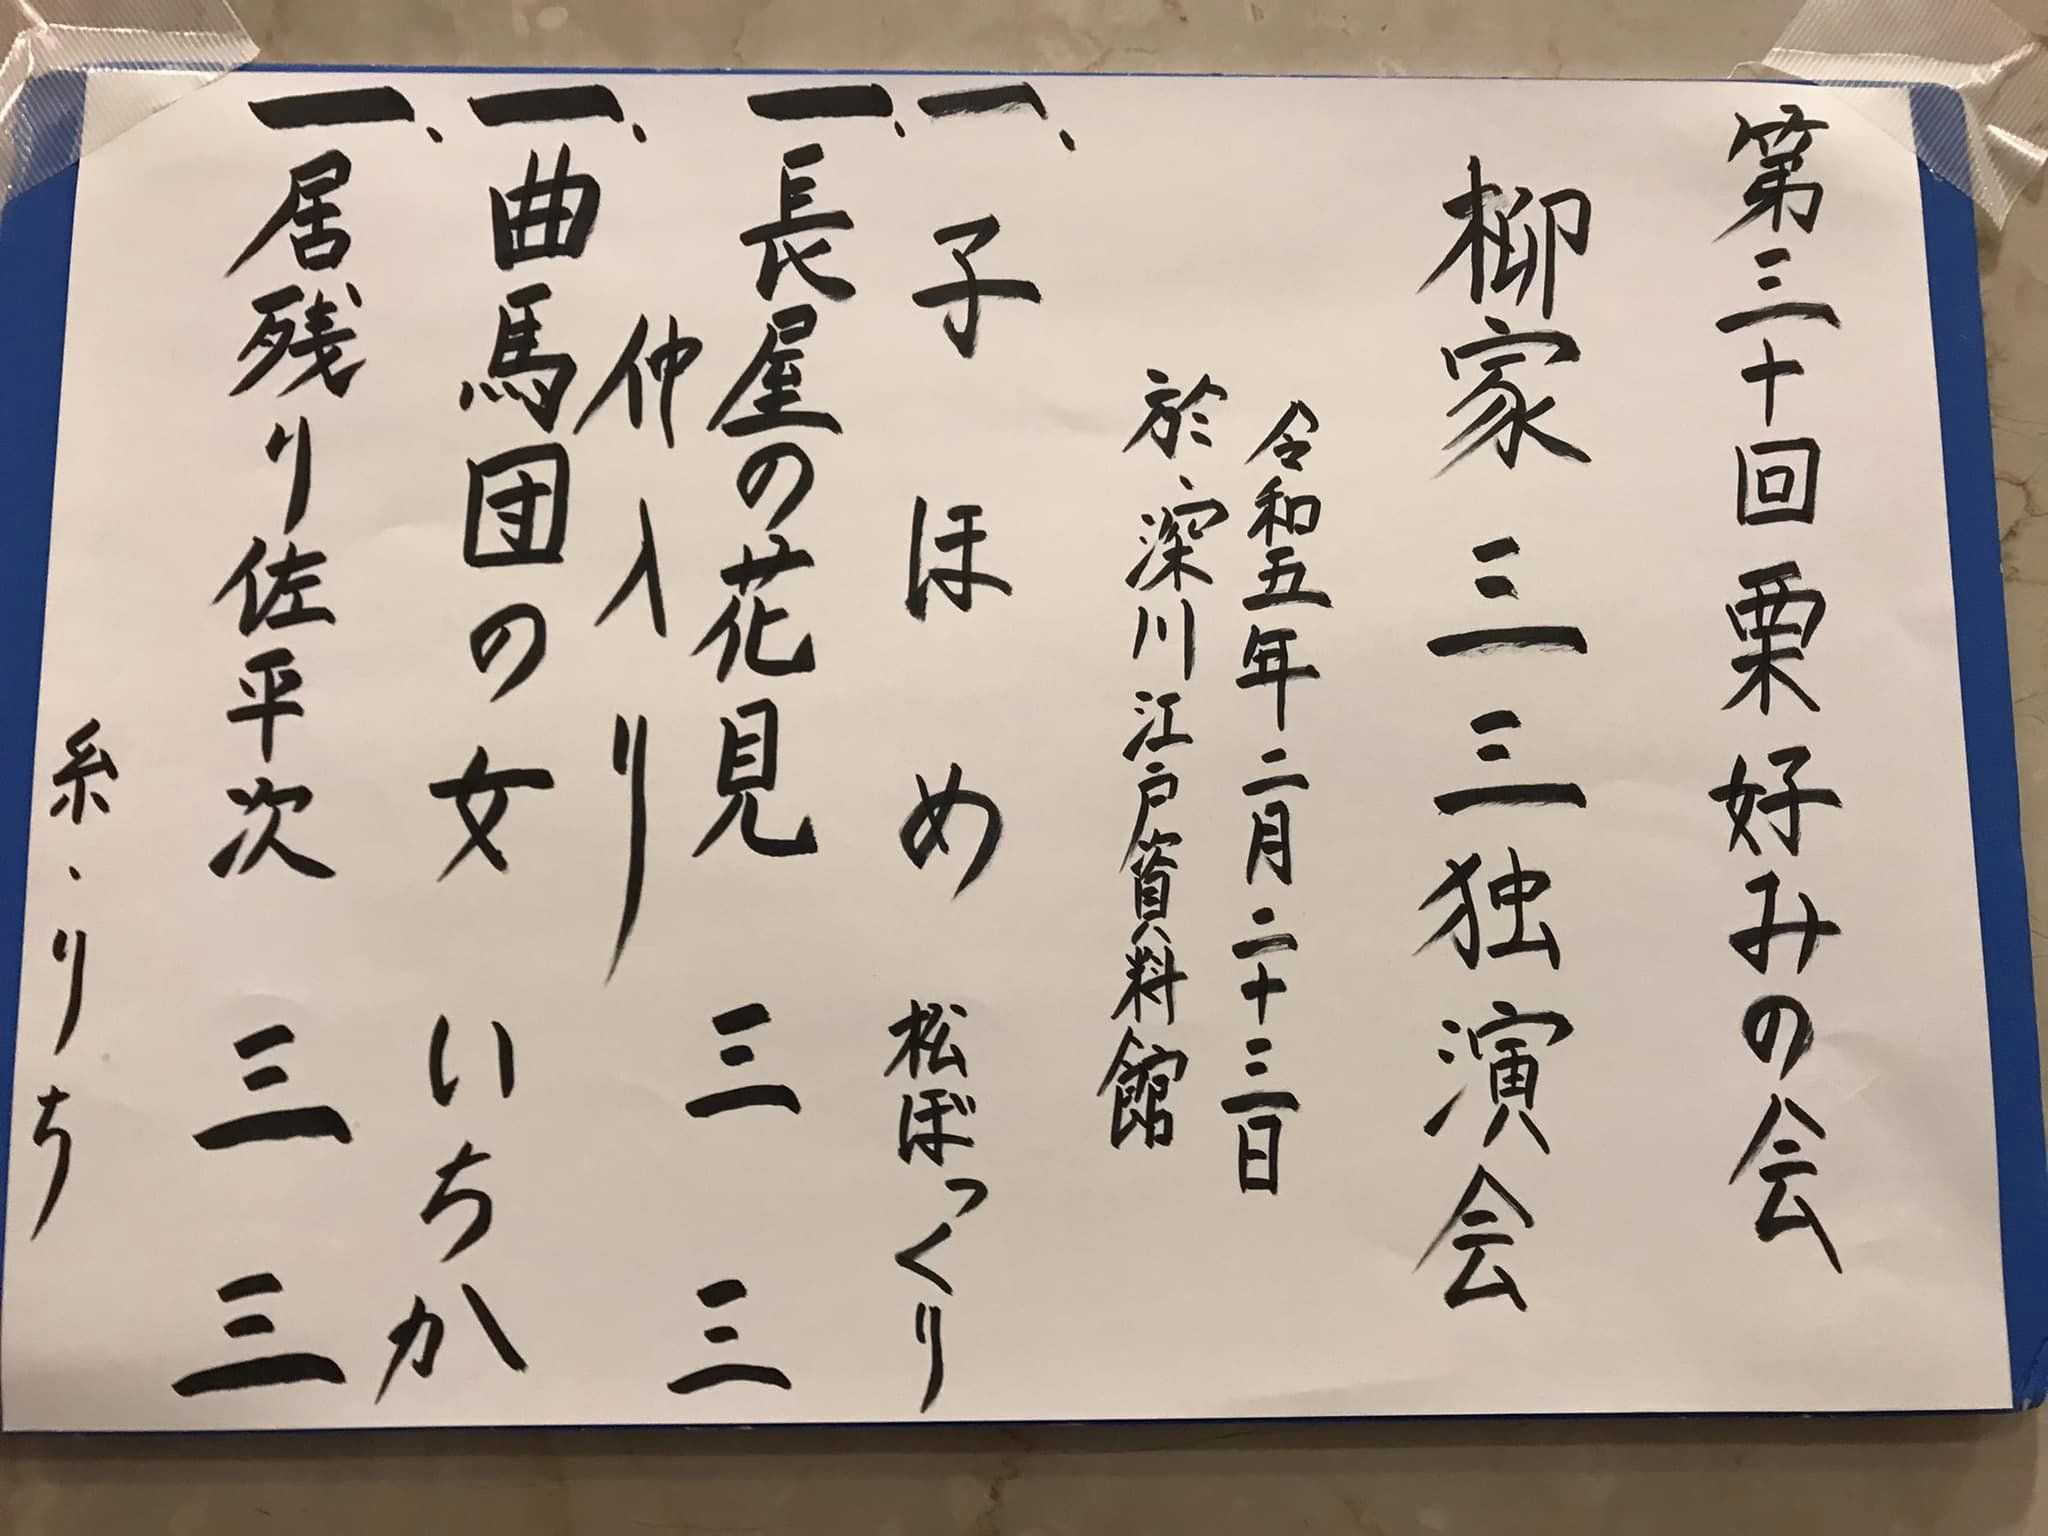 第三十回栗好みの会
柳家三三独演会
令和五年二月二十三日
於、深川江戸資料館
一、子ほめ 松ぼっくり
一、長屋の花見 三三
仲入り
一、曲馬団の女 いちか
一、居残り佐平次 三三
糸・りち